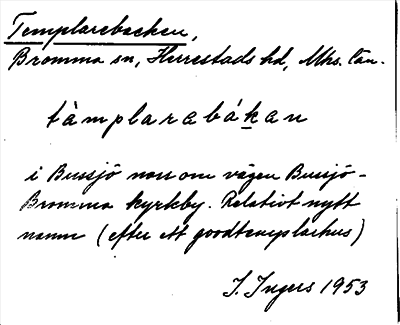 Templarebacken,
Bromma sn, Herrestads hd, Mhs. län.
tàmplarabákan
i Bussjö norr om vägen Bussjö-
Bromma kyrkby. Relativt nytt
namn (efter ett goodtemplarhus)
I. Ingers 1953